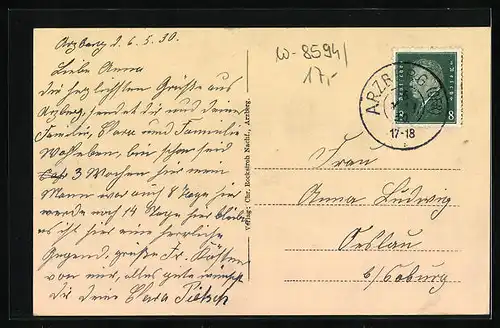 Arzberg d. 6. 5. 30.
Liebe Anna
die herzlichsten Grüße aus
Arzberg, sendet dir und deine
Familie, Clara und Familie
Wohleben, bin schon seid
3 Wochen hier mein
Mann war auch 8 Tage hier
werde noch 14 Tage hier bleiben
es ist hier eine herrliche
Gegend, grüße Fr.
von mir, alles gute wünscht
dir deine Clara Pietsch
W-8594/
17,-
ARZBERG
17-18
8
Verlag: Chr. Rockstroh Nachf., Arzberg.
Frau
Anna Ludwig
Oeslau
b/Coburg